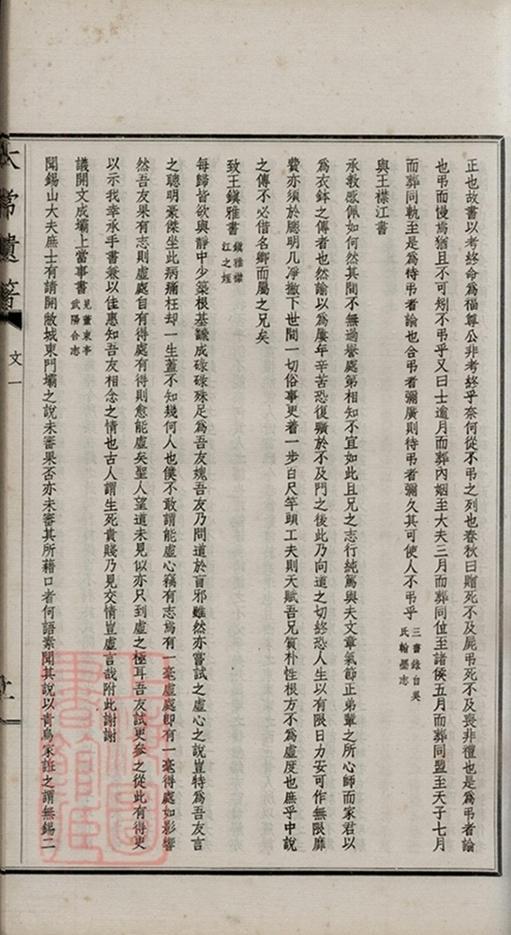 正也故書以考終命為福尊公非考終乎奈何從不弔之列也春秋曰贈死不及屍弔死不及喪非禮也是為弔者論
也弔而慢焉猶且不可矧不弔乎又曰士逾月而葬內姻至大夫三月而葬同位至諸侯五月而葬同盟至天子七月
而葬同軌至是為待弔者論也合弔者彌廣則待弔者彌久其可使人不弔乎 三書錄自吳氏翰墨志
與王檏江書
承教感佩如何然其間不無過譽處第相知不宜如此且兄之志行純篤與夫文章氣節正弟輩之所心師而家君以
為衣鉢之傳者也然諭以為屢年辛苦恐復曠於不及門之後此乃向道之切終恐人生以有限日力安可作無限靡
費亦須於聰明几凈撤下世間一切俗事更着一步百尺竿頭工夫則天賦吾兄質朴性根方不為虛度也庶乎中說
之傳不必借名鄉而屬之兄矣
致王鎮雅書 鎮雅檏江之姪
每歸皆欲與靜中少築根基譾成碌碌殊足為吾友媿吾友乃問道於盲邪雖然亦嘗試之虛心之說豈特為吾友言
之聰明豪傑坐此病痛枉却一生蓋不知幾何人也僕不敢謂能虛心竊有志焉有一毫虛處即有一毫得處如影響
然吾友果有志則虛處自有得處有得則愈能虛矣聖人望道未見似亦只到虛之極耳吾友試更參之從此有得更
以示我幸承手書兼以佳惠知吾友相念之情也古人謂生死貴賤乃見交情豈虛言哉附此謝謝
議開文成壩上當事書 見董東亭武陽合志
聞錫山大夫庶士有請開敝城東門壩之說未審果否亦未審其所藉口者何語素聞其說以青烏家誑之謂無錫二
太常遺著
文一